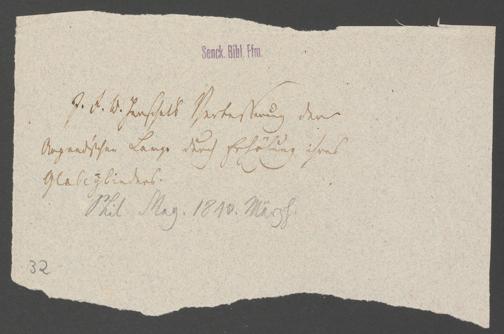 Senck. Bibl. Ffm.
J. F. W. Herschels Verbesserung der
Argand'schen Lampe durch Erhöhung ihres
Glascylinders.
Phil. Mag. 1840. März
32